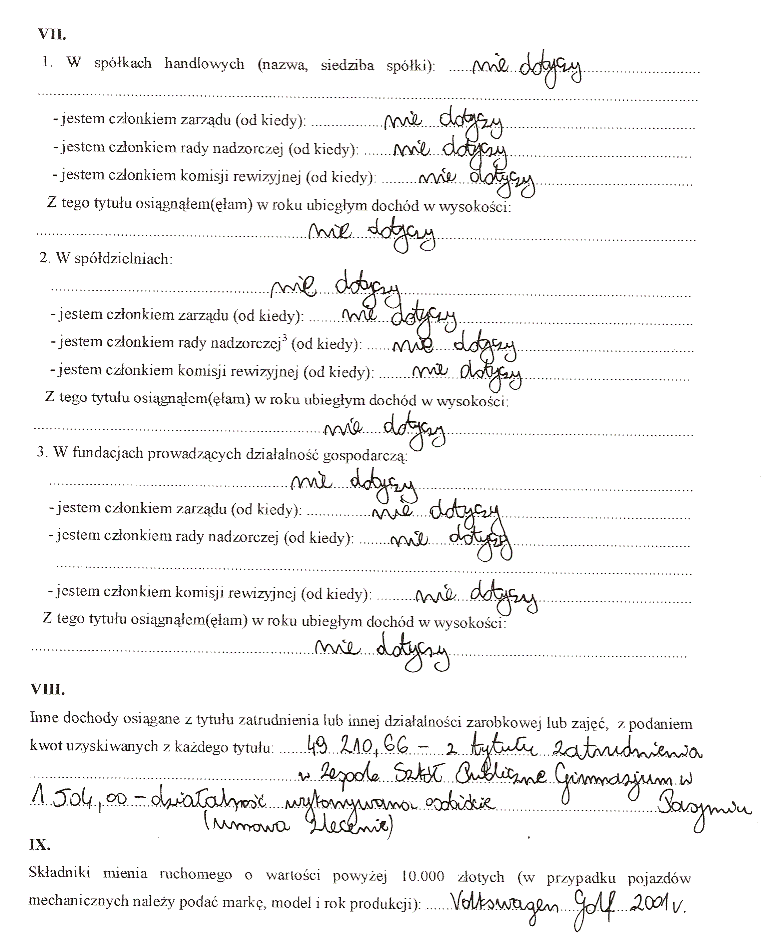 VII.
1. W spółkach handlowych (nazwa, siedziba spółki): nie dotyczy
- jestem członkiem zarządu (od kiedy): nie dotyczy
- jestem członkiem rady nadzorczej (od kiedy): nie dotyczy
- jestem członkiem komisji rewizyjnej (od kiedy): nie dotyczy
Z tego tytułu osiągnąłem(ęłam) w roku ubiegłym dochód w wysokości:
nie dotyczy
2. W spółdzielniach:
nie dotyczy
- jestem członkiem zarządu (od kiedy): nie dotyczy
- jestem członkiem rady nadzorczej³ (od kiedy): nie dotyczy
- jestem członkiem komisji rewizyjnej (od kiedy): nie dotyczy
Z tego tytułu osiągnąłem(ęłam) w roku ubiegłym dochód w wysokości:
nie dotyczy
3. W fundacjach prowadzących działalność gospodarczą:
nie dotyczy
- jestem członkiem zarządu (od kiedy): nie dotyczy
- jestem członkiem rady nadzorczej (od kiedy): nie dotyczy
- jestem członkiem komisji rewizyjnej (od kiedy): nie dotyczy
Z tego tytułu osiągnąłem(ęłam) w roku ubiegłym dochód w wysokości:
nie dotyczy
VIII.
Inne dochody osiągane z tytułu zatrudnienia lub innej działalności zarobkowej lub zajęć, z podaniem
kwot uzyskiwanych z każdego tytułu: 49 210,66 - z tytułu zatrudnienia
w Zespole Szkół Publiczne Gimnazjum w
1 504,00 - działalność wykonywana osobiście Pasymiu
(umowa zlecenie)
IX.
Składniki mienia ruchomego o wartości powyżej 10.000 złotych (w przypadku pojazdów
mechanicznych należy podać markę, model i rok produkcji): Volkswagen Golf 2001 r.